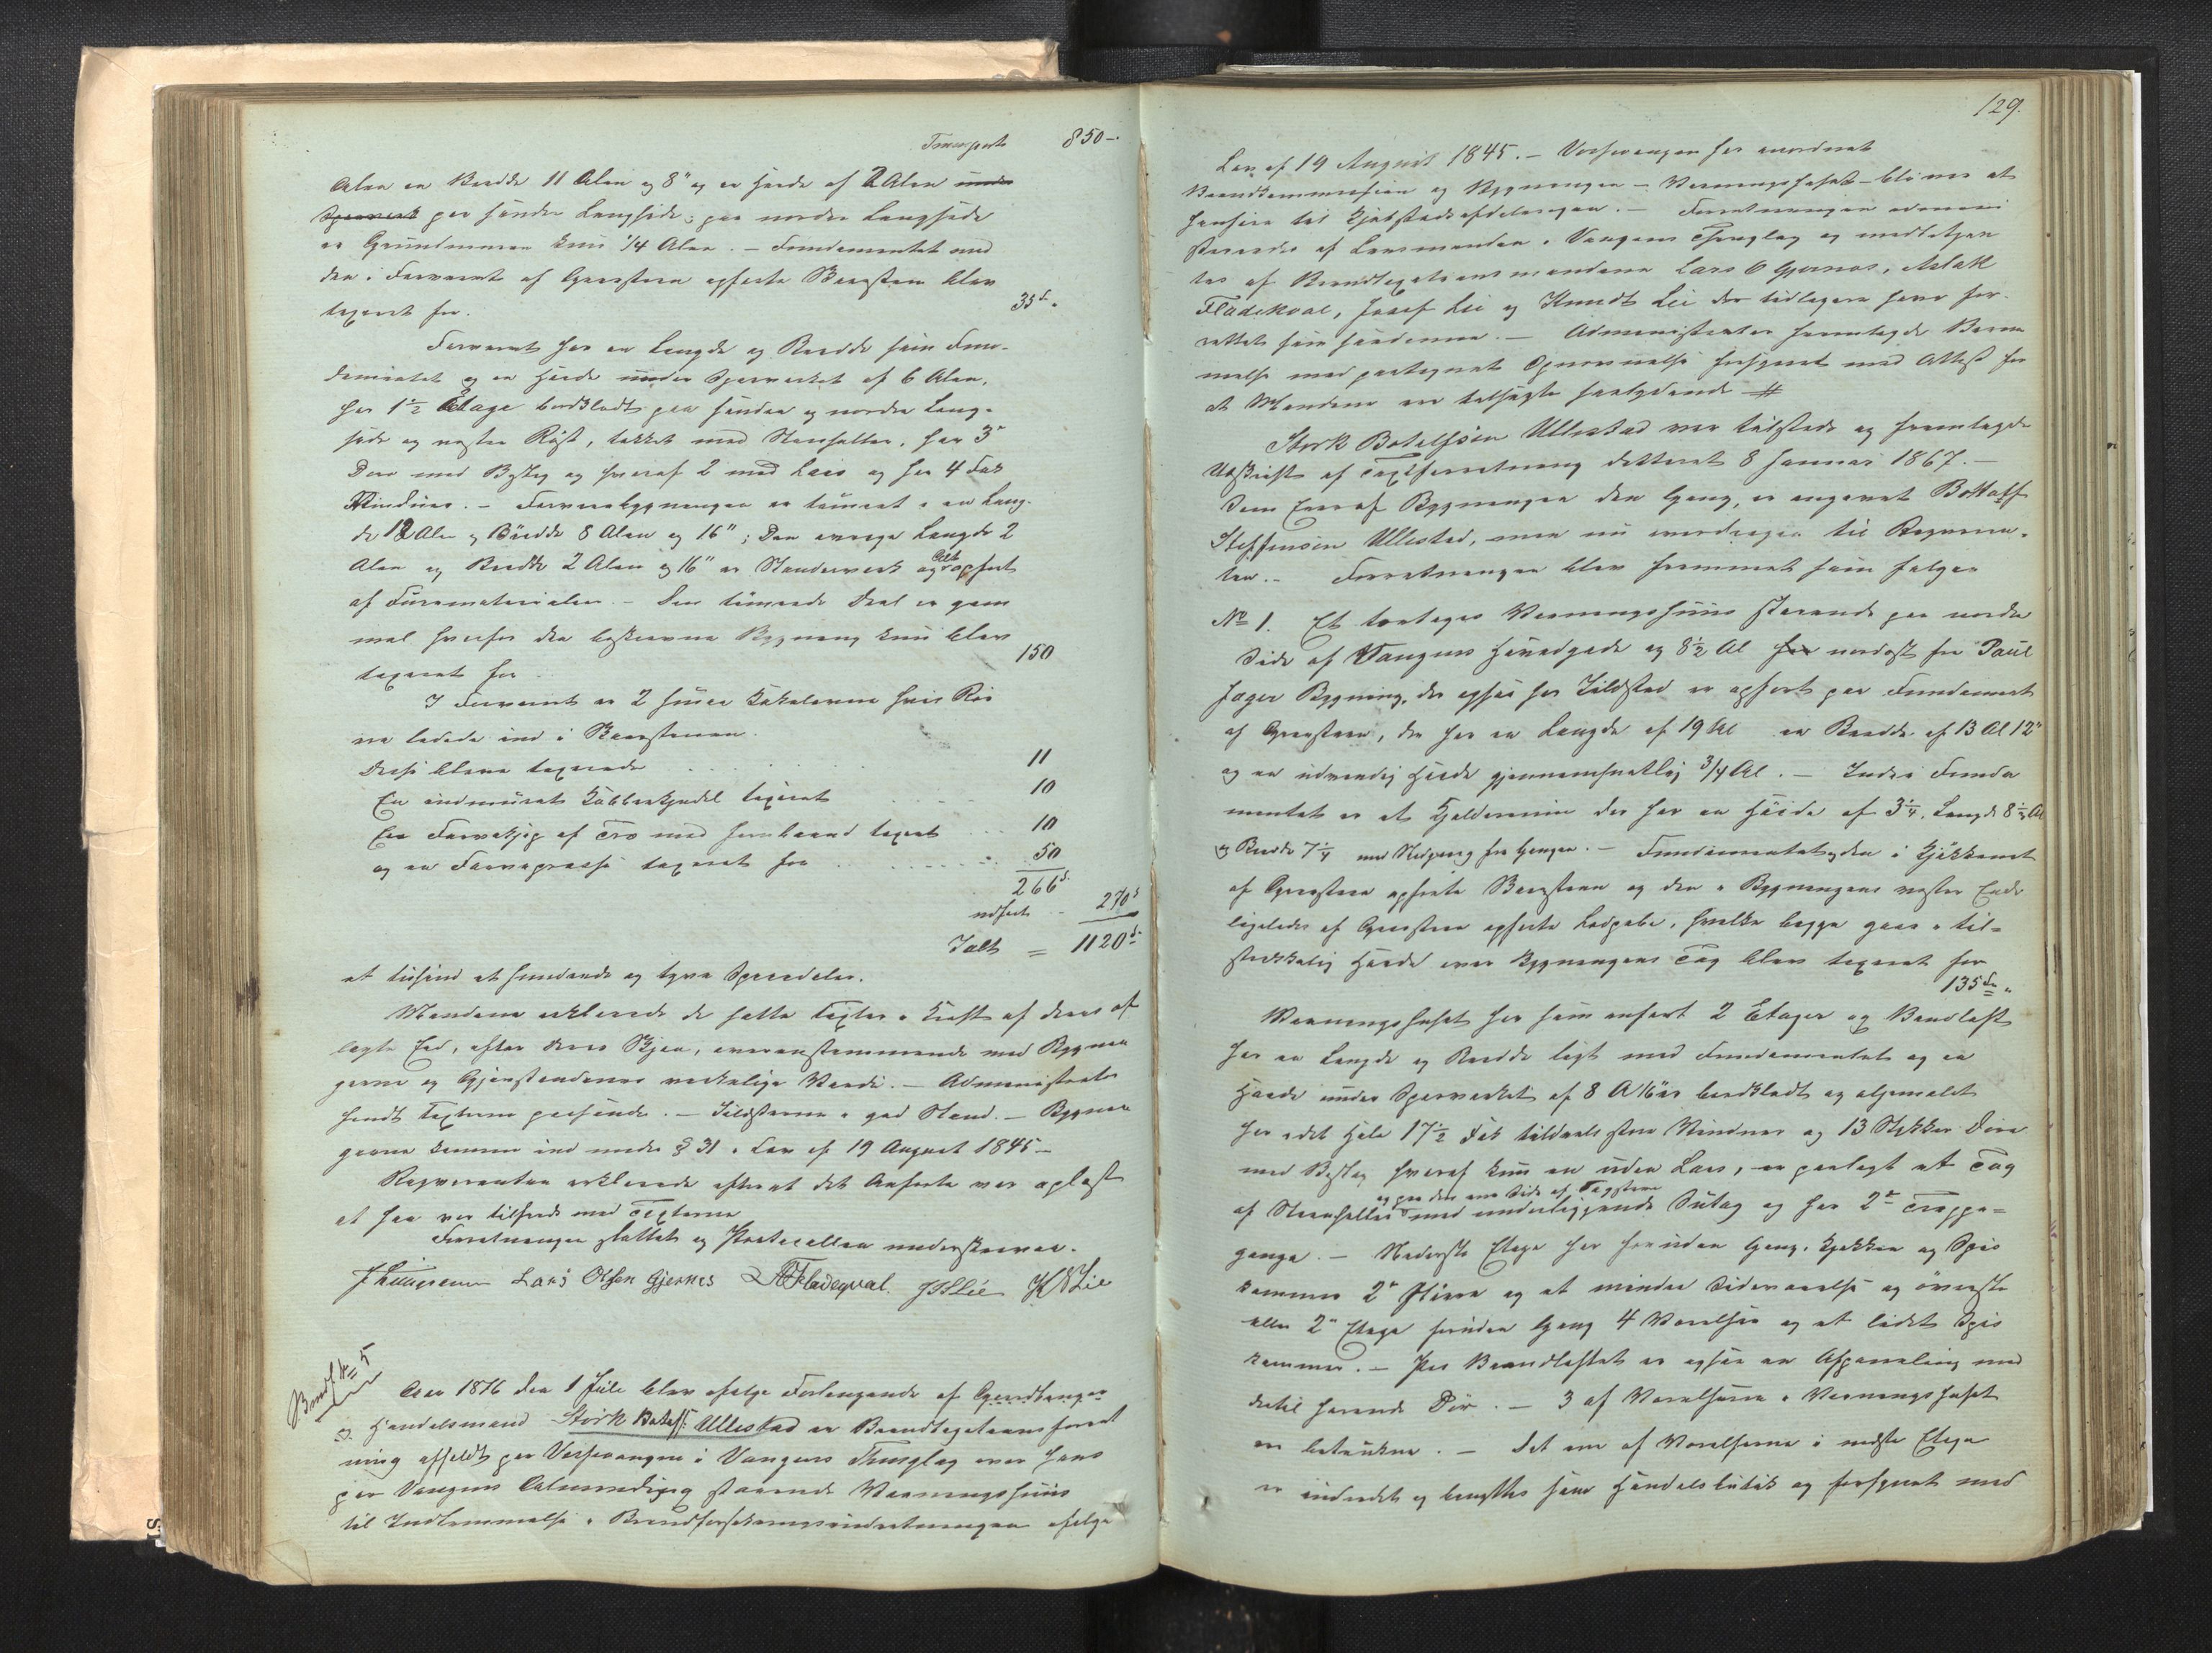 Transport 850 -
Alen en Bredde 11 Alen og 8" og en Høide af 2 Alen under
Sperværk paa søndre Langside; paa nordre Langside
er Grundmuren kun 1/4 Alen. - Fundamentet med
den i Farveriet af Graasteen opførte Skorsteen blev
taxeret for. 35 "
Farveriet har en Længde og Bredde som Fun-
damentet og en Høide under Sperværket af 6 Alen,
har 1½ Etage bordklædt paa søndre og nordre Lang-
side og vestre Røst, tækket med Steenheller, har 3
Døre med Beslag og hvoraf 2 med Laas og har 4 Fag
Vinduer. - Farveribygningen er tømret i en Læng-
de 12 Alen og Bredde 8 Alen og 16"; Den øvrige Længde 2
Alen og Bredde 2 Alen og 16" er Stenderværk og Alt opført
af Furumaterialer. - Den tømrede Deel er gam
mel hvorfor den beskrevne Bygning kun blev
taxeret for 150
I Farveriet er 2 smaa Kakelovne hvis Rør
ere ledede ind i Skorstenen.
Disse bleve taxerede . . . . 11
En indmuret Kobberkjedel taxeret . . . 10
En Farvekyp af Træ med Jernbaand taxeret . . 10
og en Farvepresse taxeret for . . . . 50
266
udført . . 270
Ialt = 1120
et tusind et hundrede og tyve Speciedaler.
Mændene erklærede de satte Taxter i Kraft af deres af
lagte Eed, efter deres Skjøn, overensstemmende med Bygnin
gerne og Gjenstandenes virkelige Værdi. - Administrator
fandt Taxterne passende. - Ildstederne i god Stand. - Bygnin
gerne komme ind under § 31 i Lov af 19 August 1845 -
Reqvirenten erklærede efterat det Anførte var oplæst
at han var tilfreds med Taxterne
Forretningen sluttet og Protocollen underskreven.
Lars Olsen Gjernes A Fladeqval. JSLie K N Lie
Brandf. No 5
Aar 1876 den 1 Juli blev ifølge Forlangende af
Handelsmand Størk Botolfs. Ullestad en Brandtaxationsforret
ning afholdt paa Vossevangen i Vangens Thinglag over hans
paa Vangens Almending staaende Vaaningshuus
til Indlemmelse i Brandforsikringsindretningen ifølge
129.
Lov af 19 August 1845. - Vossevangen har anordnet
Brandkommission og Bygningen - Vaaningshuset - bliver at
henføre til Kjøbstadsafdelingen. - Forretningen admini
streredes af Lensmanden i Vangens Thinglag og medbetjen
tes af Brandtaxationsmændene Lars O Gjernes, Aslak
Fladekval, Josef Lie og Knudt Lie der tidligere have for-
rettet som saadanne. - Administrator fremlagde Beram
melse med paategnet Opnævnelse forsynet med Attest for
at Mændene ere tilsagte saalydende #
Størk Botolfsøn Ullestad var tilstede og fremlagde
Udskrift af Taxtforretning dateret 8 Januar 1867. -
Som Eier af Bygningen den Gang, er angivet Bottolf
Steffensøn Ullestad, men nu overdragen til Reqviren-
ten. - Forretningen blev fremmet som følger
No 1. Et toetages Vaaningshuus staaende paa nordre
Side af Vangens Hovedgade og 8½ Al fra nordost fra Paul
Jæger Bygning, der ogsaa har Ildsted er opført paa Fundament
af Graasteen, der har en Længde af 19 Al en Bredde af 13 Al 12"
og en udvendig Høide gjennemsnitlig 3/4 Al. - Inde i Funda
mentet er et Kjelderrum der har en Høide af 3¼, Længde 8½ Al
og Bredde 7¼ med Nedgang fra Gangen. - Fundamentet og den i Kjøkkenet
af Graasteen opførte Skorsteen og den i Bygningens vestre Ende
ligeledes af Graasteen opførte Ledpibe, hvilke begge gaar i til-
strækkelig Høide over Bygningens Tag blev taxeret for
135
Vaaningshuset har som anført 2 Etager og Brandloft
har en Længde og Bredde ligt med Fundamentet og en
Høide under Sperværket af 8 Al 16" er bordklædt og oljemalet
har i det Hele 17½ Fag tildeels store Vinduer og 13 Stykker Døre
med Beslag hvoraf kun en uden Laas, er paalagt et Tag
af Steenheller og paa den ene Side af Tagsteen med underliggende Sutag og har 2de Trappe-
gange. - Nederste Etage har foruden Gang, Kjøkken og Spis
kammer 2 Stuer og et mindre Sideværelse og øverste
eller 2n Etage foruden Gang 4 Værelser og et lidet Spis
kammer. - Paa Brandloftet er ogsaa en Afpaneling med
dertil hørende Dør. - 3 af Værelserne i Vaaningshuset
er betrukne. - Det ene af Værelserne i nedste Etage
er indredet og benyttes som Handelsbutik og forsynet med